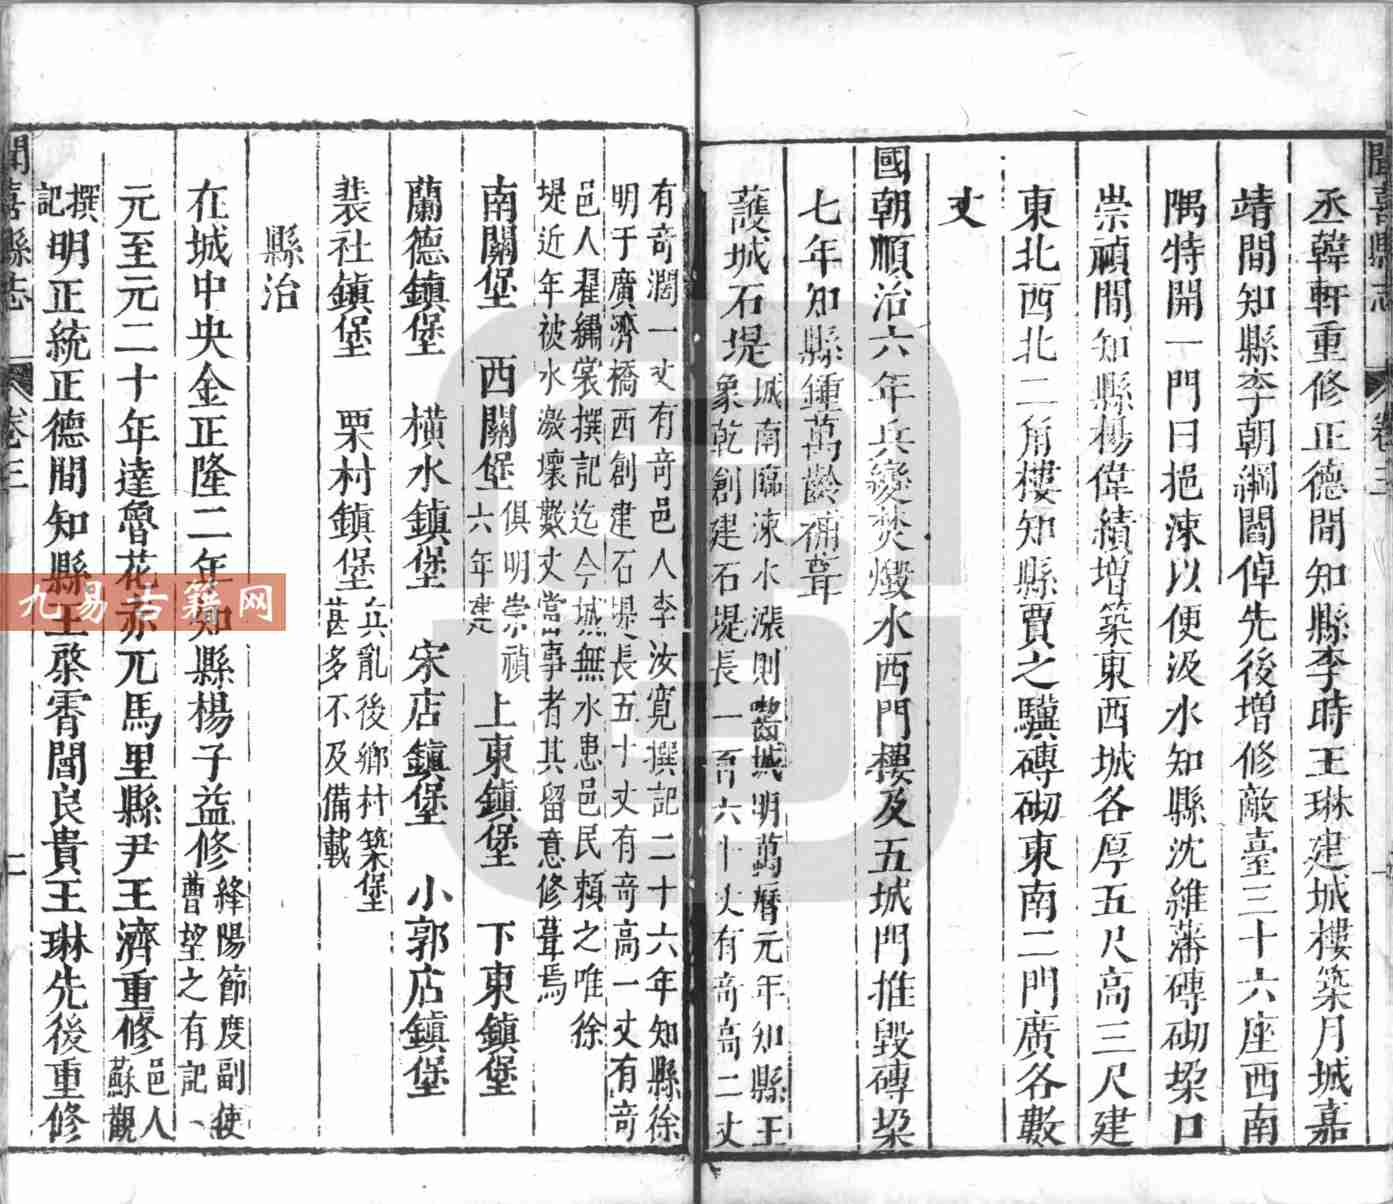 聞喜縣志
卷三
丞韓軒重修正德間知縣李時王琳建城樓築月城嘉
靖間知縣李朝綱閻倬先後增修敵臺三十六座西南
隅特開一門曰挹涑以便汲水知縣沈維藩磚砌垛口
崇禎間知縣楊偉績增築東西城各厚五尺高三尺建
東北西北二角樓知縣賈之驥磚砌東南二門廣各數
丈
國朝順治六年兵變焚燬水西門樓及五城門推毀磚垛
七年知縣鍾萬齡補葺
護城石堤
城南臨涑水漲則嚙城明萬曆元年知縣王
象乾創建石堤長一百六十丈有奇高二丈
有奇濶一丈有奇邑人李汝寬撰記二十六年知縣徐
明于廣濟橋西創建石堤長五十丈有奇高一丈有奇
邑人翟繡裳撰記迄今城無水患邑民賴之唯徐
堤近年被水激壞數丈當事者其留意修葺焉
南關堡 西關堡
俱明崇禎
六年建
上東鎮堡 下東鎮堡
蘭德鎮堡 橫水鎮堡 宋店鎮堡 小郭店鎮堡
裴社鎮堡 栗村鎮堡
兵亂後鄉村築堡
甚多不及備載
縣治
在城中央金正隆二年知縣楊子益修
絳陽節度副使
曹望之有記
元至元二十年達魯花赤兀馬里縣尹王濟重修
邑人
蘇觀
撰
記
明正統正德間知縣王棨霄閻良貴王琳先後重修
聞喜縣志
卷三
二
九易古籍网